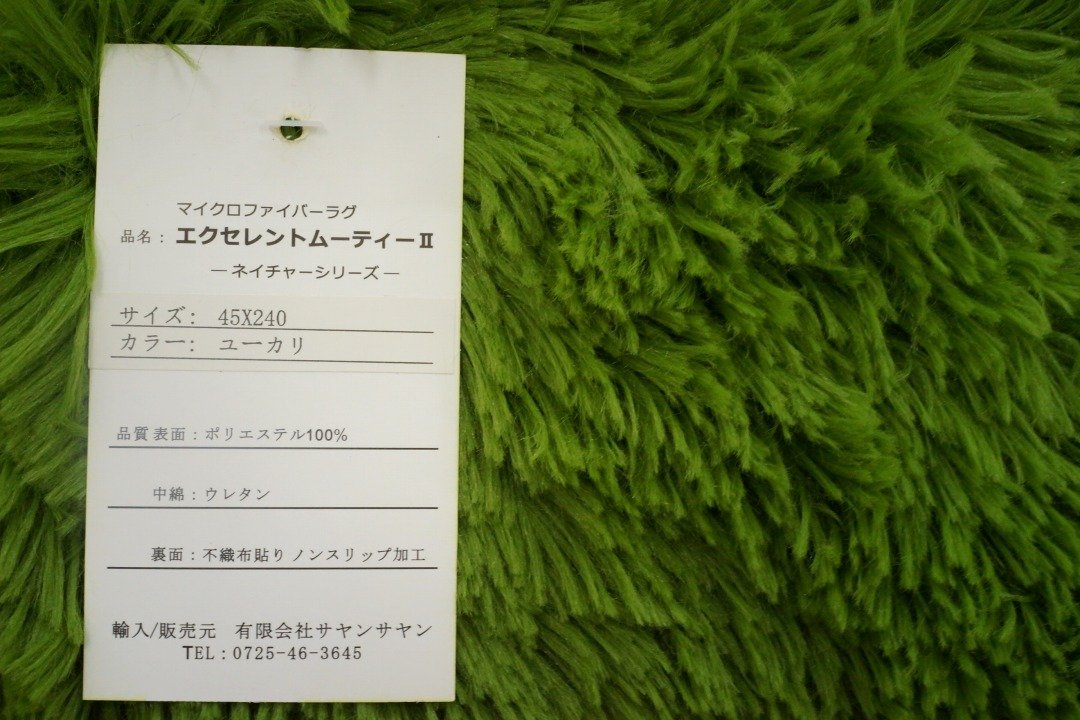 マイクロファイバーラグ
品名：エクセレントムーティーⅡ
―ネイチャーシリーズ―
サイズ: 45X240
カラー: ユーカリ
品質 表面：ポリエステル100%
中綿：ウレタン
裏面：不織布貼り ノンスリップ加工
輸入/販売元　有限会社サヤンサヤン
TEL：0725-46-3645